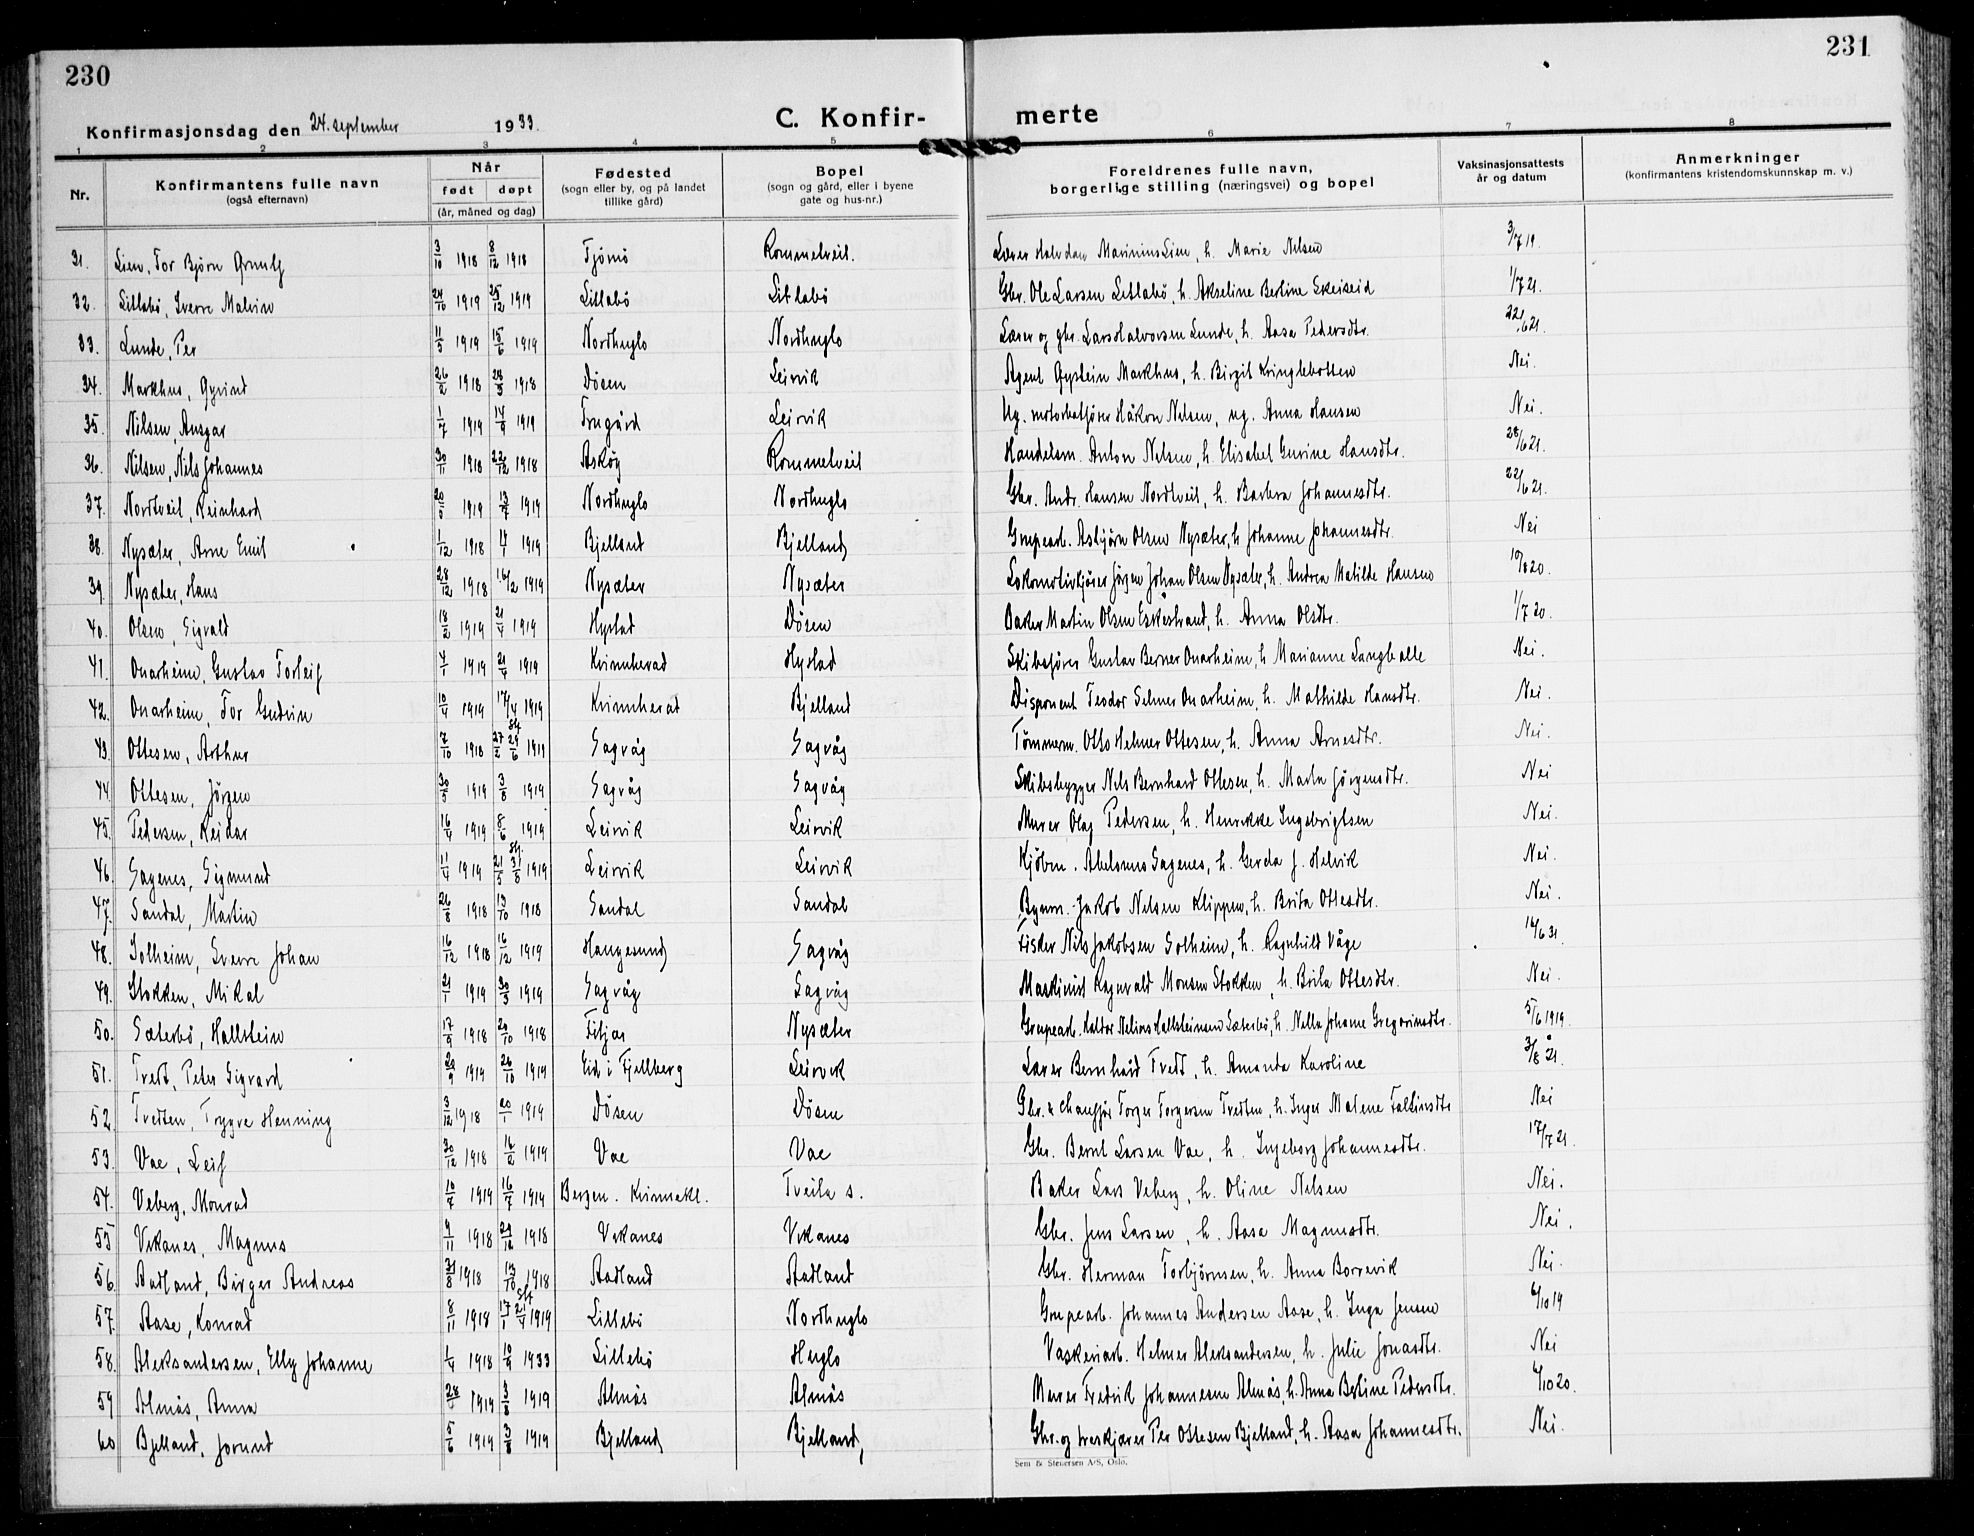 230
231
Konfirmasjonsdag den 24. september 1933.
C. Konfir-
merte
1 2 3 4 5 6 7 8
Nr.
Konfirmantens fulle navn
(også efternavn)
Når
født døpt
(år, måned og dag)
Fødested
(sogn eller by, og på landet
tillike gård)
Bopel
(sogn og gård, eller i byene
gate og hus-nr.)
Foreldrenes fulle navn,
borgerlige stilling (næringsvei) og bopel
Vaksinasjonsattests
år og datum
Anmerkninger
(konfirmantens kristendomskunnskap m. v.)
31. Lien, Tor Bjørn 3/10 1918 8/12 1918 Tjömö Rommetveit. Lærer Halvdan Marinius Lien, h. Marie Nilsen 3/7 19.
32. Litlabö, Sverre Malvin 24/10 1919 25/12 1919 Litlabö Litlabö Gbr. Ole Larsen Litlabö, h. Akseline Bertine Ekeseid 1/7 21.
33. Lunde, Per 11/5 1919 15/6 1919 Nordhuglo Nordhuglo Lærer og gbr. Lars Halvorsen Lunde, h. Aasa Pedersdtr. 22/6 21.
34. Markhus, Øyvind 26/2 1918 28/3 1918 Dösen Leirvik Agent Øystein Markhus, h. Birgit Kringlebotten Nei.
35. Nilsen, Ansgar 1/7 1919 14/9 1919 Frugård Leirvik Ug. motorbåtförer Håkon Nilsen, ug. Anna Hansen Nei.
36. Nilsen, Nils Johannes 30/1 1918 22/12 1918 Askøy Rommetveit Handelsm. Anton Nilsen, h. Elisabet Gurine Hansdtr. 28/6 21.
37. Nordtveit, Reinhard 20/5 1919 13/7 1919 Nordhuglo Nordhuglo Gbr. Andr. Hansen Nordtveit, h. Barbra Johannesdtr. 22/6 21.
38. Nysæter, Arne Emil 1/12 1918 1919 Bjelland Bjelland Grupearb. Asbjørn Olsen Nysæter, h. Johanne Johannesdtr. Nei
39. Nysæter, Hans 28/12 1918 16/2 1919 Nysæter Nysæter Lokomotivkjörer Jörgen Johan Olsen Nysæter, h. Andrea Matilde Hansen 10/8 20.
40. Olsen, Sigvald 18/2 1919 21/4 1919 Hystad Dösen Baker Martin Olsen Eskestrand, h. Anna Olsdtr. 1/7 20.
41. Onarheim, Gustav Torleif 4/1 1919 21/4 1919 Kvinnherad Hystad Skibsförer Gustav Berner Onarheim, h. Marianne Langballe Nei.
42. Onarheim, Tor Gudvin 10/4 1919 17/4 1919 Kvinnherad Bjelland Disponent Teodor Selmer Onarheim, h. Mathilde Hansdtr. Nei.
43. Ottesen, Arthur 7/10 1918 27/2 st. 29/6 1919 Sagvåg Sagvåg Tömmerm. Otto Helmer Ottesen, h. Anna Arnesdtr. Nei.
44 Ottesen, Jörgen 30/5 1919 3/8 1919 Sagvåg Sagvåg Skibsbygger Nils Bernhard Ottesen, h. Marta Jörgensdtr. Nei
45. Pedersen, Reidar 16/4 1919 8/6 1919 Leirvik Leirvik Murer Olaf Pedersen, h. Henrikke Ingebrigtsen Nei.
46. Sagenes, Sigmund 11/4 1919 21/5 st. 31/8 1919 Leirvik Leirvik Kjöbm. Abelonus Sagenes, h. Gerda J. Helvik Nei.
47. Sandal, Martin 26/8 1918 13/10 1918 Sandal Sandal Bygnm. Jakob Nilsen Klippen, h. Brita Ottesdtr. Nei.
48. Solheim, Sverre Johan 16/12 1918 16/12 1919 Haugesund Sagvåg Fisker Nils Jakobsen Solheim, h. Ragnhild Våge 16/6 31.
49. Stokken, Mikal 21/1 1919 30/3 1919 Sagvåg Sagvåg Maskinist Ragnvald Monsen Stokken, h. Brita Ottesdtr. Nei.
50. Sæterbö, Hallstein 17/9 1918 20/10 1918 Fitjar Nysæter Grupearb. Haldor Nelius Hallsteinsen Sæterbö, h. Nella Johanne Gregoriusdtr. 5/6 1919.
51. Tvedt, Peter Sigvard 20/9 1919 26/10 1919 Eid i Fjellberg Leirvik Lærer Bernhard Tvedt, h. Amanda Karoline 3/8 21.
52. Tvedten, Trygve Henning 3/12 1918 20/1 1919 Dösen Dösen Gbr. & chauffør Torger Torgersen Tvedten, h. Inger Malene Falkinsdtr Nei
53. Vae, Leif 30/12 1918 16/2 1919 Vae Vae Gbr. Bernt Larsen Vae, h. Ingeborg Johannesdtr. 17/7 21.
54. Veberg, Monrad 10/4 1919 16/7 1919 Bergen. Kvinnekl. Tveita s. Baker Lars Veberg, h. Oline Nilsen Nei.
55 Vikanes, Magnus 9/11 1918 29/12 1918 Vikanes Vikanes Gbr. Jens Larsen, h. Aasa Magnusdtr. Nei.
56. Aadland, Birger Andreas 31/8 1918 13/10 1918 Aadland Aadland Gbr. Herman Torbjörnsen, h. Anna Borrevik Nei.
57. Aase, Konrad 8/11 1918 17/1 st. 21/4 1919 Litlabö Nordhuglo Grupearb. Johannes Andersen Aase, h. Inga Jensen 6/10 19
58. Aleksandersen, Elly Johanne 1/4 1918 10/9 1933 Litlabö Huglo Vaskeriarb. Helmer Aleksandersen, h. Julie Jonasdtr. Nei
59 Almås, Anna 1919 3/8 1919 Almås Almås Murer Fredrik Johannesen Almås, h. Anna Bertine Pedersdtr. 4/10 20.
60 Bjelland, Jorund 5/6 1919 3/8 1919 Bjelland Bjelland, Gbr. og treskjærer Per Ottesen Bjelland, h. Aasa Johannesdtr. Nei.
Sem & Stenersen A/S, Oslo.